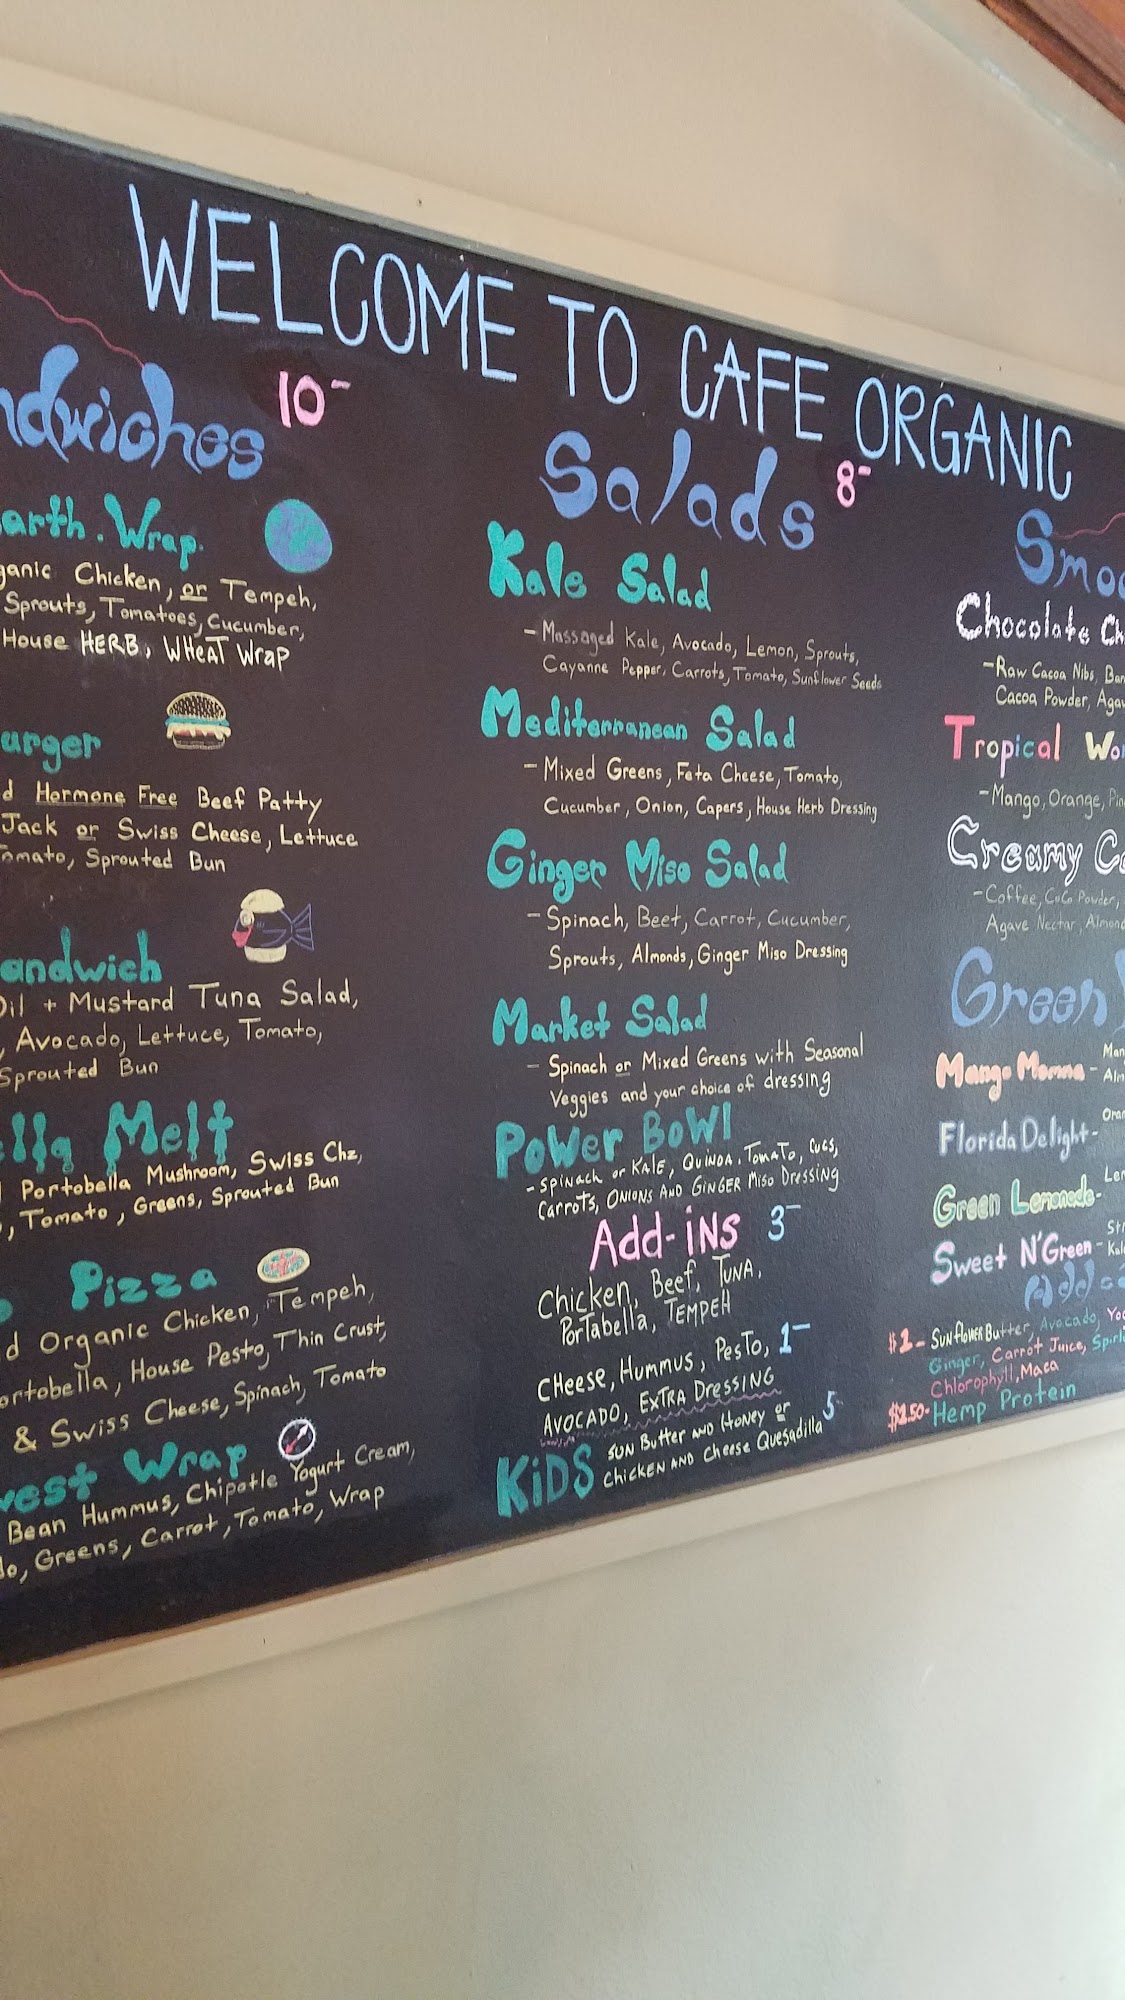 WELCOME TO CAFE ORGANIC
10-
Wrap
Chicken, or Tempeh,
Sprouts, Tomatoes, Cucumber,
House HERB, WHEAT Wrap
Hormone Free Beef Patty
Jack or Swiss Cheese, Lettuce
Sprouted Bun
+ Mustard Tuna Salad,
Avocado, Lettuce, Tomato,
Sprouted Bun
Melt
Portobella Mushroom, Swiss Chz,
Tomato, Greens, Sprouted Bun
Pizza
Organic Chicken, Tempeh,
House Pesto, Thin Crust,
& Swiss Cheese, Spinach, Tomato
Wrap
Bean Hummus, Chipotle Yogurt Cream,
Greens, Carrot, Tomato, Wrap
Salads 8-
Kale Salad
- Massaged Kale, Avocado, Lemon, Sprouts,
Cayanne Pepper, Carrots, Tomato, Sunflower Seeds
Mediterranean Salad
- Mixed Greens, Feta Cheese, Tomato,
Cucumber, Onion, Capers, House Herb Dressing
Ginger Miso Salad
- Spinach, Beet, Carrot, Cucumber,
Sprouts, Almonds, Ginger Miso Dressing
Market Salad
- Spinach or Mixed Greens with Seasonal
Veggies and your choice of dressing
POWER BOWl
- SPINACH or KALE, QUINOA, TOMATO, CUCS,
CARROTS, ONIONS AND GINGER MISO DRESSING
Add-iNS 3-
Chicken, Beef, TUNA,
PORTABELLA, TEMPEH
CHEESE, HUMMUS, PESTO, 1-
AVOCADO, EXTRA DRESSING
KiDS SUN BUTTER AND HONEY or 5-
CHICKEN AND CHEESE QUESADILLA
Chocolate
- Raw Cacoa Nibs,
Cacoa Powder,
Tropical
- Mango, Orange,
Creamy
- Coffee, CoCo Powder,
Agave Nectar,
Green
Mango Momma -
Florida Delight -
Green Lemonade -
Sweet N'Green -
$1 - SUNFLOWER Butter, Avocado,
Ginger, Carrot Juice,
Chlorophyll, Maca
$1.50 - Hemp Protein